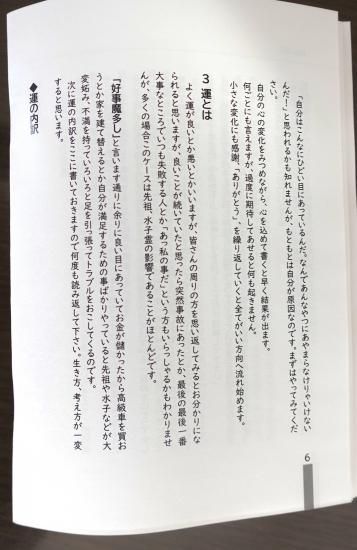 「自分はこんなにひどい目にあっているんだ。なんであんなやつにあやまらなけりゃいけない
んだ！」と思われるかも知れませんが、もともとは自分が原因なのです。まずはやってみてくだ
さい。
自分の心の変化をみつめながら、心を込めて書くと早く結果が出ます。
何ごとにも言えますが、過度に期待してあせると何も起きません。
小さな変化にも感謝、「ありがとう」、を繰り返していくと全てがいい方向へ流れ始めます。
3 運とは
よく運が良いとか悪いとかいいますが、皆さんの周りの方を思い返してみるとお分かりにな
られると思いますが、良いことが続いていたと思ったら突然事故にあったとか、最後の最後一番
大事なところでいつも失敗する人とか「あっ私の事だ」という方もいらっしゃるかもわかりませ
んが、多くの場合このケースは先祖、水子霊の影響であることがほとんどです。
「好事魔多し」と言います通りに余りに良い目にあっていてお金が儲かったから高級車を買お
うとか家を建て替えるとか自分が満足するための事ばかりやっていると先祖や水子などが大
変妬み、不満を持っていろいろと足を引っ張ってトラブルをおこしてくるのです。
次に運の内訳をここに書いておきますので何度も読み返して下さい。生き方、考え方が一変
すると思います。
◆運の内訳
6